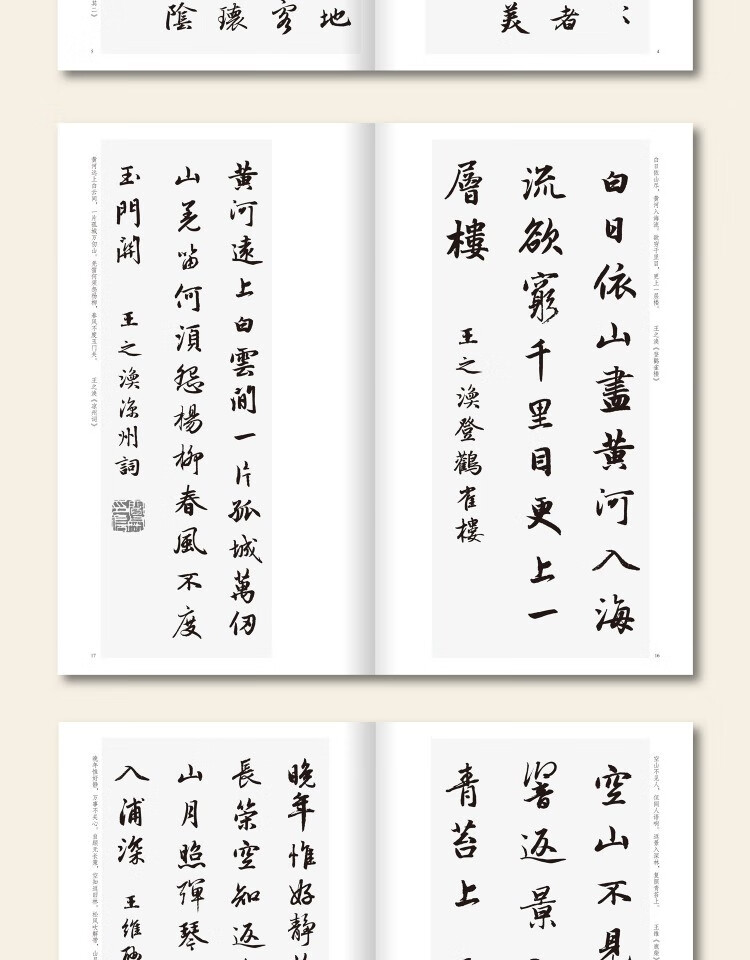 者
美
4
地
客
瓌
陰
5
白日依山尽，黄河入海流。欲穷千里目，更上一层楼。 王之涣《登鹳雀楼》
白日依山盡黄河入海
流欲窮千里目更上一
層樓 王之渙登鸛雀樓
16
黄河遠上白雲间一片孤城萬仞
山羌笛何須怨楊柳春風不度
玉門関 王之渙涼州詞
黄河远上白云间，一片孤城万仞山。羌笛何须怨杨柳，春风不度玉门关。 王之涣《凉州词》
17
空山不见人，但闻人语响。返景入深林，复照青苔上。 王维《鹿柴》
空山不見
響返景
青苔上
晚年惟好靜
長策空知返
山月照彈琴
入浦深 王維
晚年惟好静，万事不关心。自顾无长策，空知返旧林。松风吹解带，山月